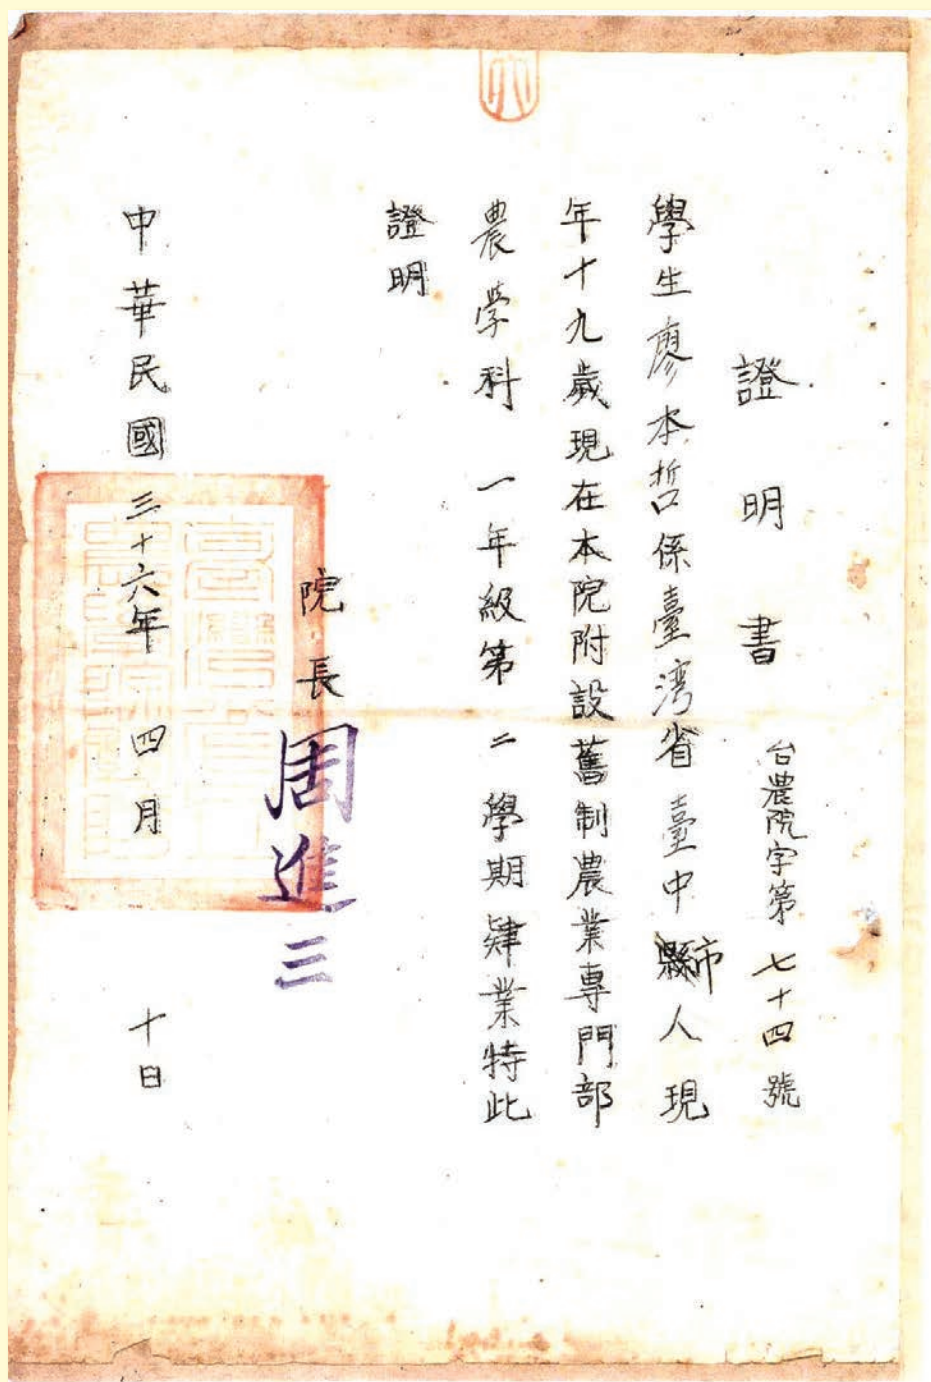 證明書
台農院字第七十四號
學生廖本哲係臺湾省臺中縣市人現
年十九歲現在本院附設舊制農業專門部
農学科 一年級第二學期肄業特此
證明
院長周進三
中華民國三十六年 四月 十日